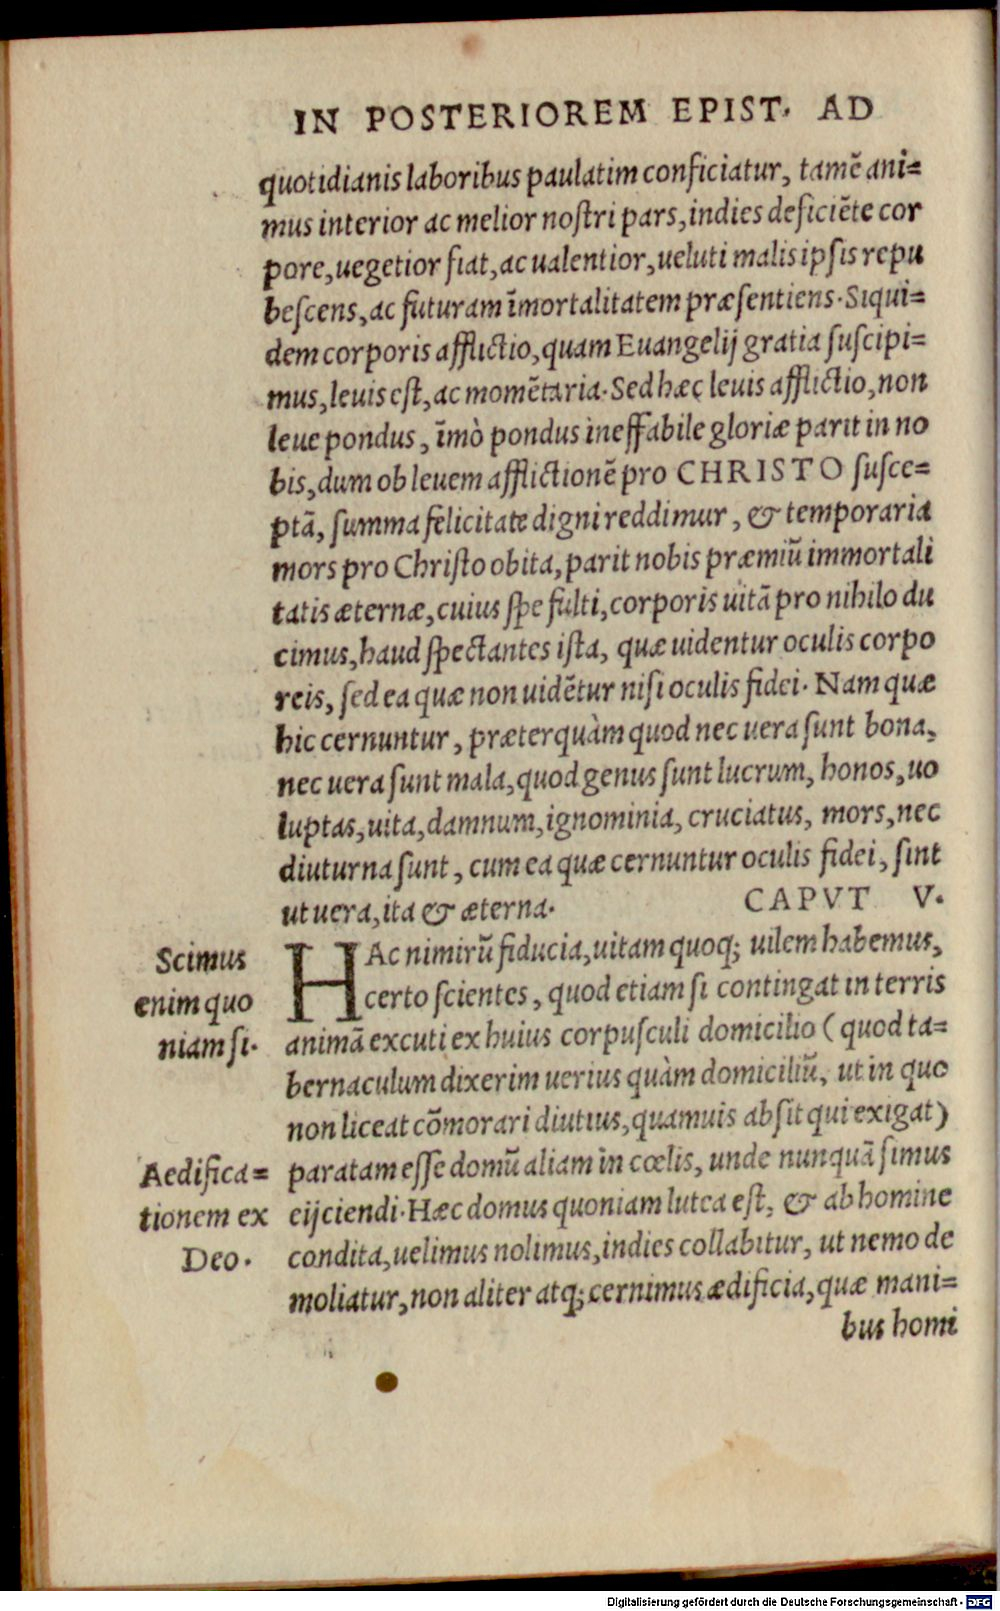 IN POSTERIOREM EPIST. AD
quotidianis laboribus paulatim conficiatur, tamẽ ani=
mus interior ac melior noſtri pars, indies deficiẽte cor
pore, uegetior fiat, ac ualentior, ueluti malis ipſis repu
beſcens, ac futuram ĩmortalitatem præſentiens. Siqui=
dem corporis afflictio, quam Euangelij gratia ſuſcipi=
mus, leuis eſt, ac momẽtaria. Sed hæc leuis afflictio, non
leue pondus, ĩmò pondus ineffabile gloriæ parit in no
bis, dum ob leuem afflictionẽ pro CHRISTO ſuſce=
ptã, ſumma felicitate digni reddimur, & temporaria
mors pro Chriſto obita, parit nobis præmiũ immortali
tatis æternæ, cuius ſpe fulti, corporis uitã pro nihilo du
cimus, haud ſpectantes iſta, quæ uidentur oculis corpo
reis, ſed ea quæ non uidẽtur niſi oculis fidei. Nam quæ
hic cernuntur, præterquàm quod nec uera ſunt bona,
nec uera ſunt mala, quod genus ſunt lucrum, honos, uo
luptas, uita, damnum, ignominia, cruciatus, mors, nec
diuturna ſunt, cum ea quæ cernuntur oculis fidei, ſint
ut uera, ita & æterna. CAPVT V.
HAc nimirũ fiducia, uitam quoq; uilem habemus,
certo ſcientes, quod etiam ſi contingat in terris
animã excuti ex huius corpuſculi domicilio (quod ta=
bernaculum dixerim uerius quàm domiciliũ, ut in quo
non liceat cõmorari diutius, quamuis abſit qui exigat)
paratam eſſe domũ aliam in cœlis, unde nunquã ſimus
eijciendi. Hæc domus quoniam lutea eſt, & ab homine
condita, uelimus nolimus, indies collabitur, ut nemo de
moliatur, non aliter atq; cernimus ædificia, quæ mani=
bus homi
Scimus
enim quo
niam ſi.
Aedifica=
tionem ex
Deo.
Digitalisierung gefördert durch die Deutsche Forschungsgemeinschaft - DFG